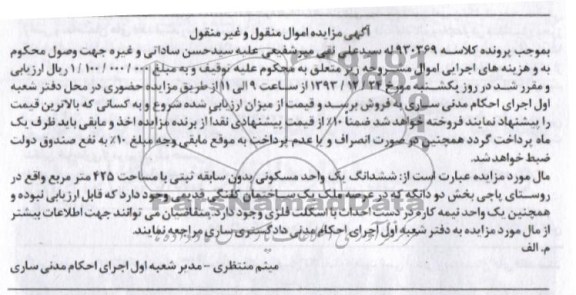 آگهی مزایده اموال منقول و غیر منقول
بموجب پرونده کلاسه ۹۳۰۳۶۹ له سیدعلی نقی میرشفیعی علیه سیدحسن ساداتی و غیره جهت وصول محکوم
به و هزینه های اجرایی اموال مشروحه زیر متعلق به محکوم علیه توقیف و به مبلغ ۱/۱۰۰/۰۰۰/۰۰۰ ریال ارزیابی
و مقرر شد در روز یکشنبه مورخ ۱۳۹۳/۱۲/۲۴ از ساعت ۹ الی ۱۱ از طریق مزایده حضوری در محل دفتر شعبه
اول اجرای احکام مدنی ساری به فروش برسد و قیمت از میزان ارزیابی شده شروع و به کسانی که بالاترین قیمت
را پیشنهاد نمایند فروخته خواهد شد ضمنا ۱۰٪ از قیمت پیشنهادی نقدا از برنده مزایده اخذ و مابقی باید ظرف یک
ماه پرداخت گردد همچنین در صورت انصراف و یا عدم پرداخت به موقع مابقی وجه مبلغ ۱۰٪ به نفع صندوق دولت
ضبط خواهد شد.
مال مورد مزایده عبارت است از: ششدانگ یک واحد مسکونی بدون سابقه ثبتی با مساحت ۴۲۵ متر مربع واقع در
روستای پاچی بخش دو دانگه که در عرصه ملک یک ساختمان گلنگی قدیمی وجود دارد که قابل ارزیابی نبوده و
همچنین یک واحد نیمه کاره در دست احداث با اسکلت فلزی وجود دارد. متقاضیان می توانند جهت اطلاعات بیشتر
از مال مورد مزایده به دفتر شعبه اول اجرای احکام مدنی دادگستری ساری مراجعه نمایند.
م. الف
میثم منتظری - مدیر شعبه اول اجرای احکام مدنی ساری
ParsNamadData